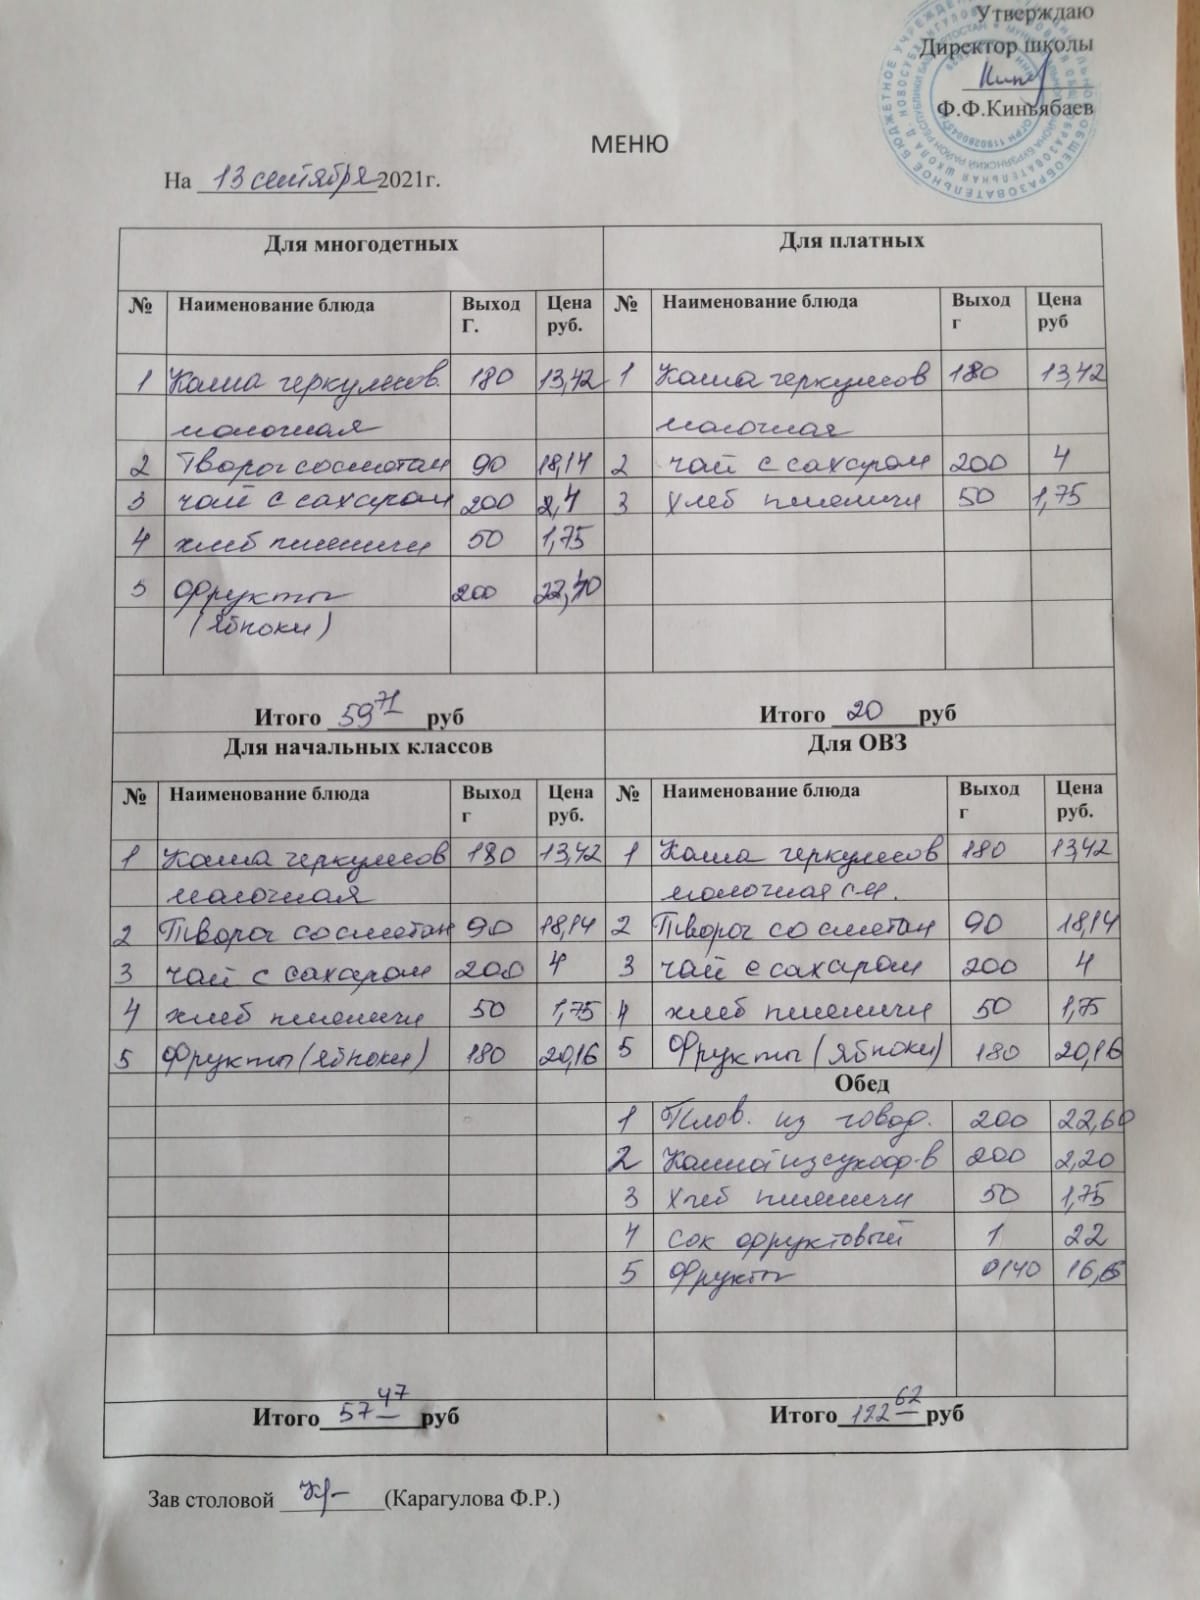 Утверждаю
Директор школы
Ф.Ф.Киньябаев
МЕНЮ
На 13 сентября 2021г.
Для многодетных
№ Наименование блюда Выход Г. Цена руб.
1 Каша геркулесов. 180 13,42
молочная
2 Творог со сметан 90 18,14
3 чай с сахаром 200 4
4 хлеб пшеничн 50 1,75
5 Фрукты 200 22,40
(яблоки)
Итого 59 71 руб
Для платных
№ Наименование блюда Выход г Цена руб
1 Каша геркулесов 180 13,42
молочная
2 чай с сахаром 200 4
3 Хлеб пшеничн 50 1,75
Итого 20 руб
Для начальных классов
№ Наименование блюда Выход г Цена руб.
1 Каша геркулесов 180 13,42
молочная
2 Творог со сметан 90 18,14
3 чай с сахаром 200 4
4 хлеб пшеничн 50 1,75
5 Фрукты (яблоки) 180 20,16
Итого 57 47 руб
Для ОВЗ
№ Наименование блюда Выход г Цена руб.
1 Каша геркулесов 180 13,42
молочная с м.
2 Творог со сметан 90 18,14
3 чай с сахаром 200 4
4 хлеб пшеничн 50 1,75
5 Фрукты (яблоки) 180 20,16
Обед
1 Плов. из говяд. 200 22,60
2 Компот из сухофр-в 200 2,20
3 Хлеб пшеничн 50 1,75
4 Сок фруктовый 1 22
5 Фрукты 0,140 16,6
Итого 122 62 руб
Зав столовой (Карагулова Ф.Р.)